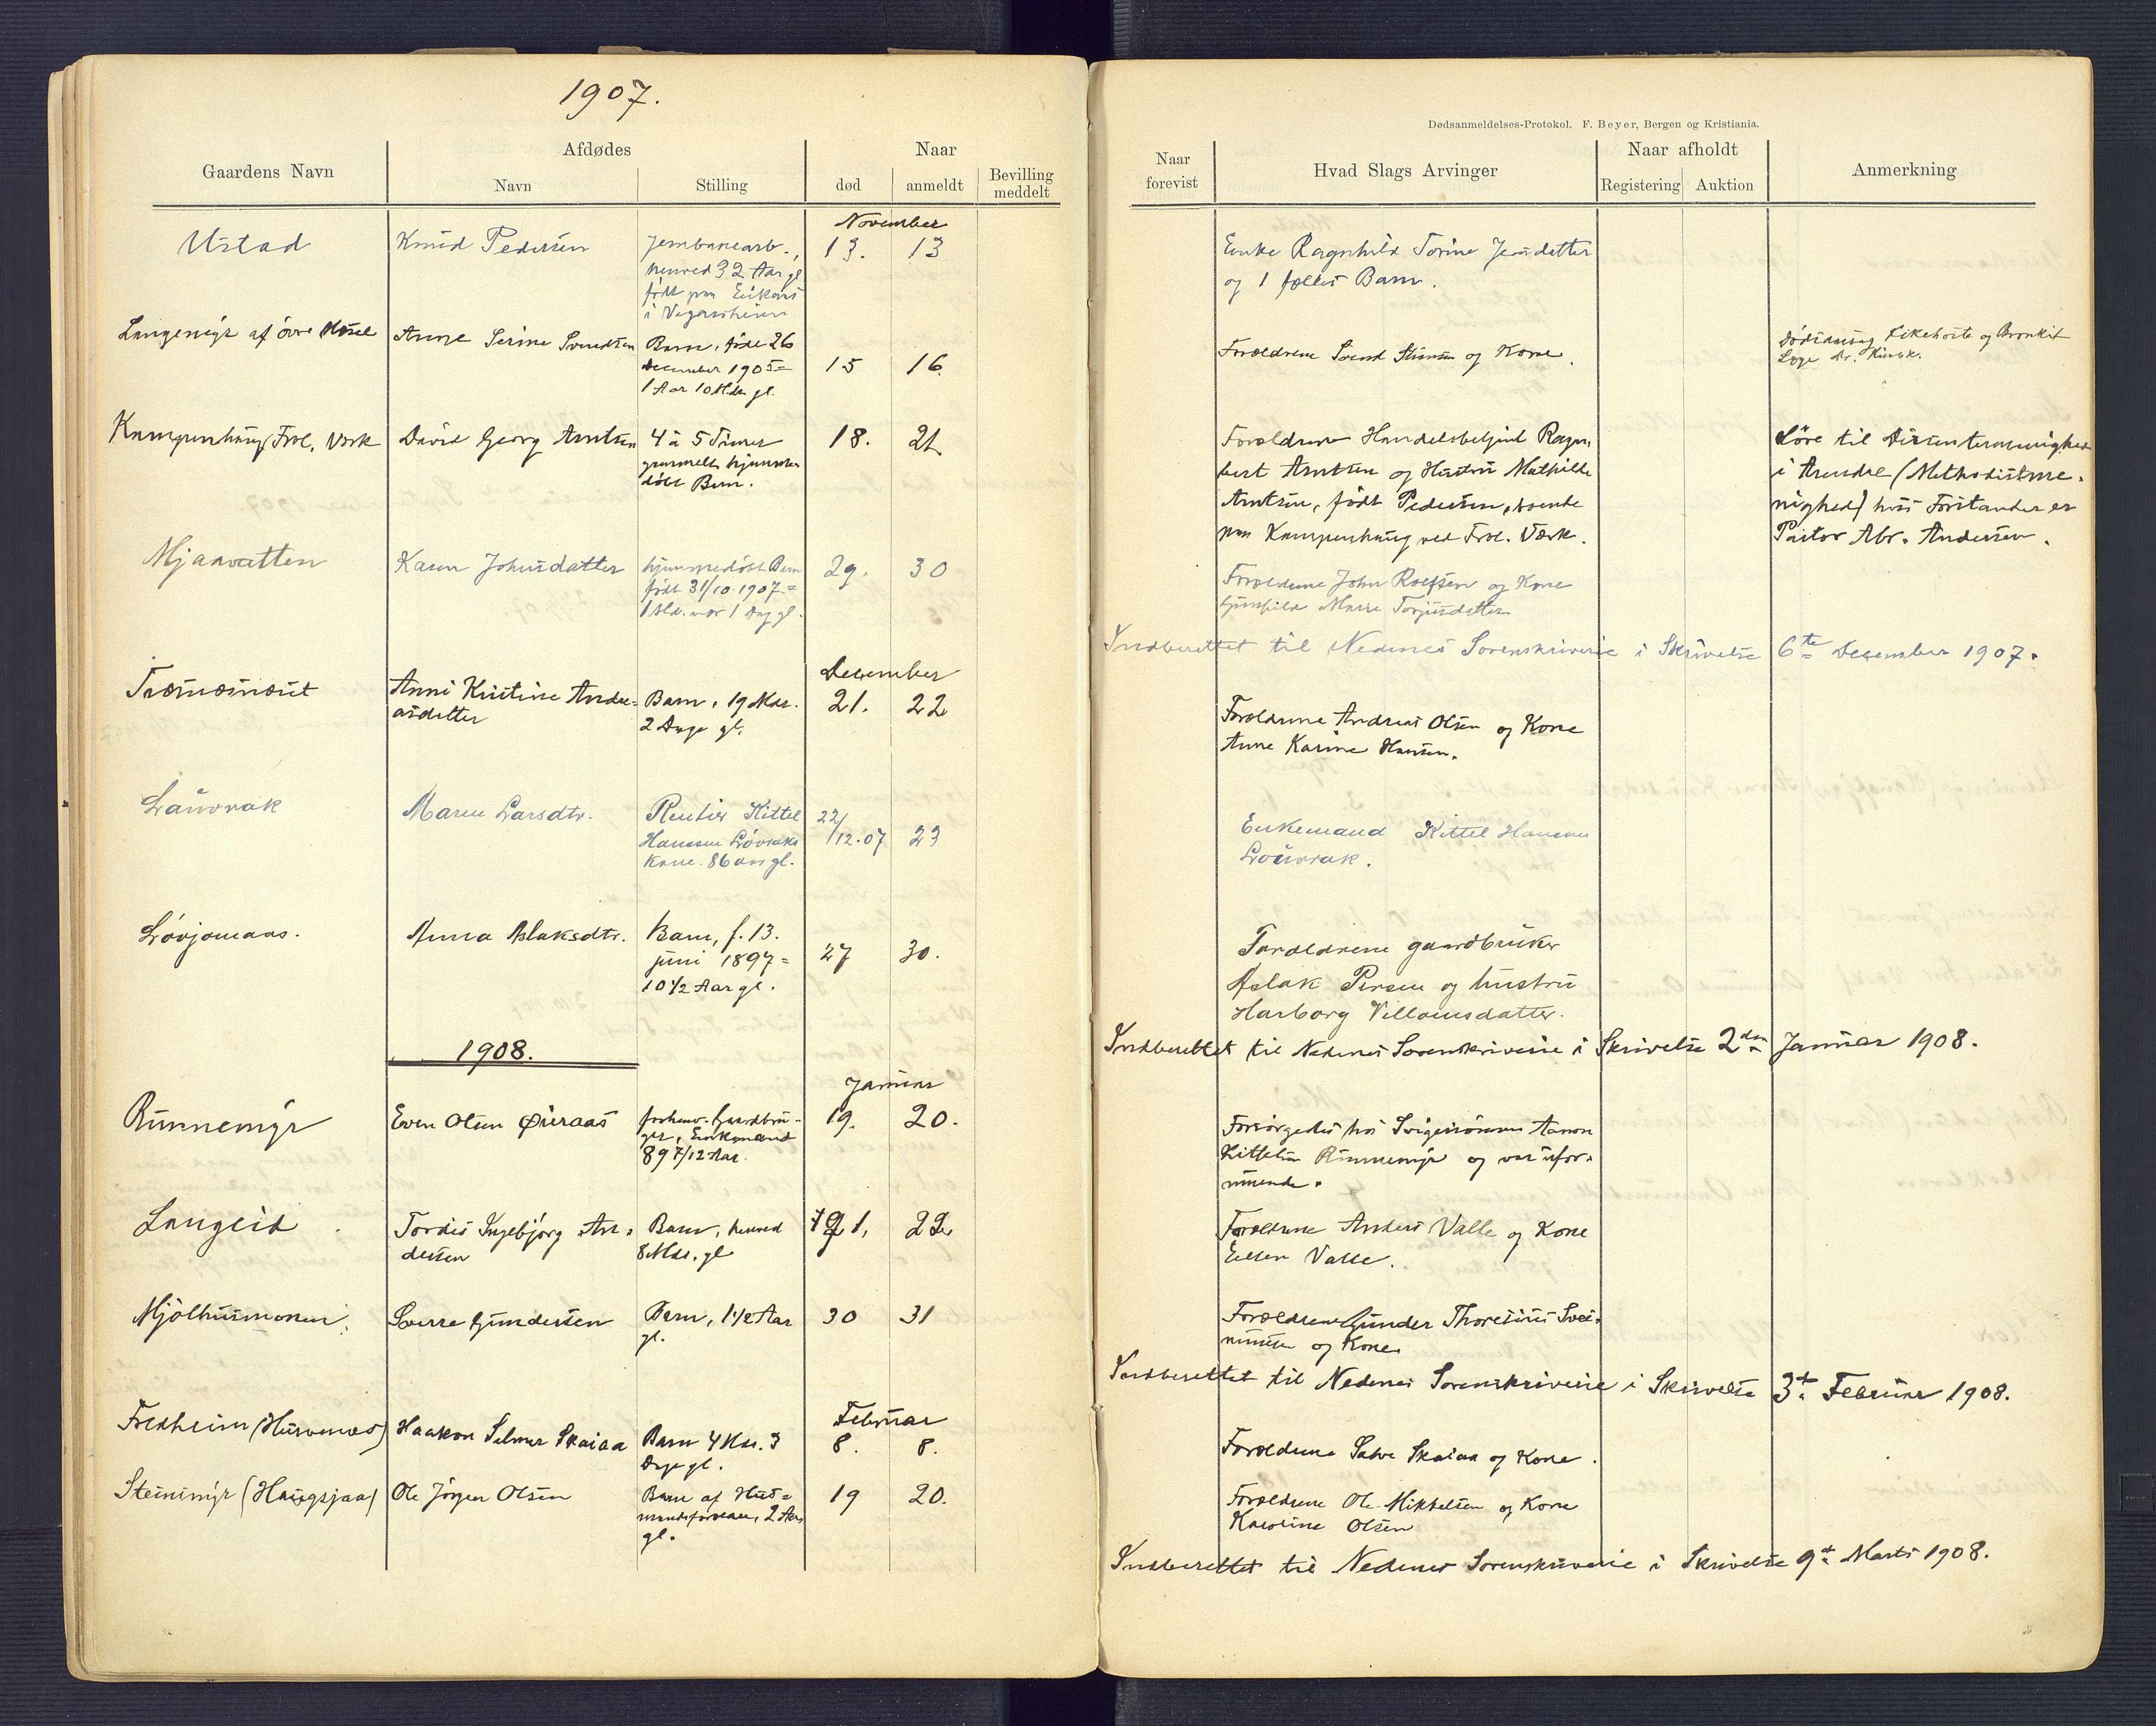 1907.
Dødsanmeldelses-Protokol. F. Beyer, Bergen og Kristiania.
Gaardens Navn
Afdødes
Navn
Stilling
Naar
død
anmeldt
Bevilling
meddelt
Naar
forevist
Hvad Slags Arvinger
Naar afholdt
Registering
Auktion
Anmerkning
November
Ustad
Knud Pedersen
Jernbanearb.,
henved 32 Aar gl
født paa
i Vegarsheien
13.
13
Enke Ragnhild Torine Jensdatter
og 1 fælles Barn.
Langemyr af övre
Anne Serine Svendsen
Barn, födt 26
December 1905=
1 Aar 10 Mdr gl.
15
16.
Forældrene Svend og Kone.
Dödsaarsag Kikhoste og Bronkit
Læge Dr.
Kampenhaug, Frol. Værk
David Georg Arntsen
4 à 5 Timer
gammelt hjemme
döbt Barn.
18.
21.
Forældrene Handelsbetjent Ragn-
bert Arntsen og Hustru Mathilde
Arntsen, födt Pedersen, boende
paa Kampenhaug ved Frol. Værk.
til
i Arendal (Methodistme-
nighed) hvis Forstander er
Pastor Abr. Andersen.
Mjaavatten
Karen Johnsdatter
hjemmedöbt Barn
födt 31/10 1907=
1 Md. 1 Dag gl.
29.
30
Forældrene John Roefsen og Kone
Gunhild Marie Torjusdatter
Indberettet til Nedenes Sorenskriverie i Skrivelse 6te December 1907.
December
Anni Kristine Andre=
asdatter
Barn, 19 Mdr.
2 Dage gl.
21.
22
Forældrene Andreas Olsen og Kone
Anne Karine Hansen.
Lauvrak
Maren Larsdtr.
Rentier Kittel
Hanssen Løvraks
kone. 86 aar gl.
22/12.07
23
Enkemand Kittel Hansen
Lauvrak.
Løvjomaas.
Anna Aslaksdtr.
Barn, f. 13.
juni 1897=
10 1/2 Aar gl.
27
30.
Forældrene gaardbruker
Aslak Persen og hustru
Harborg Villumsdatter.
Indberettet til Nedenes Sorenskriverie i Skrivelse 2den Januar 1908.
1908.
Januar
Runnemyr
Even Olsen Øieraas
forhenv. Gaardbru-
ger, Enkemand
89 7/12 Aar.
19.
20.
Forsørgedes hos Svigersønnen Aanon
Kittelsen Runnemyr og var ufor-
muende.
Langeid
Tordis Ingebjörg An-
dersen
Barn, henved
8 Mdr. gl
21,
22
Forældrene Anders Valle og Kone
Ellen Valle.
Mjölhusmonen
Sverre Gundersen
Barn, 1 1/2 Aar
gl.
30
31
Forældrene Gunder
og Kone
Indberettet til Nedenes Sorenskriverie i Skrivelse 3die Februar 1908.
Februar
Fredheim (Hurvenes)
Haakon Selmer Skaiaa
Barn 4 Mdr. 3
Dage gl.
8.
8.
Forældrene Salve Skaiaa og Kone.
Steinsmyr (Haugsjaa)
Ole Jörgen Olsen
Barn af Hus=
mands 2 Aar
gl.
19
20.
Forældrene Ole Mikkelsen og Kone
Karoline Olsen
Indberettet til Nedenes Sorenskriverie i Skrivelse 9de Marts 1908.